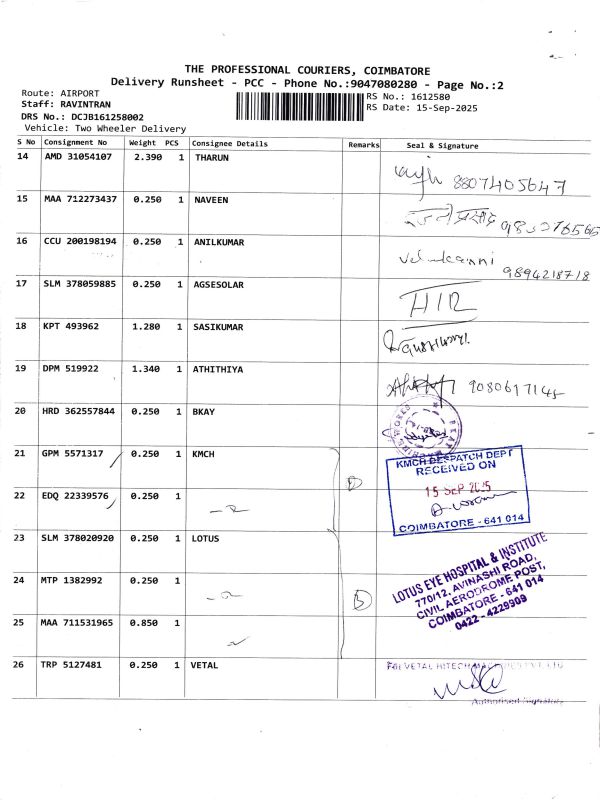 THE PROFESSIONAL COURIERS, COIMBATORE
Delivery Runsheet - PCC - Phone No.:9047080280 - Page No.:2
Route: AIRPORT
RS No.: 1612580
Staff: RAVINTRAN
RS Date: 15-Sep-2025
DRS No.: DCJB161258002
Vehicle: Two Wheeler Delivery
S No Consignment No Weight PCS Consignee Details Remarks Seal & Signature
14 AMD 31054107 2.390 1 THARUN
8807405647
15 MAA 712273437 0.250 1 NAVEEN
16 CCU 200198194 0.250 1 ANILKUMAR
9894218718
17 SLM 378059885 0.250 1 AGSESOLAR
18 KPT 493962 1.280 1 SASIKUMAR
19 DPM 519922 1.340 1 ATHITHIYA
20 HRD 362557844 0.250 1 BKAY
21 GPM 5571317 0.250 1 KMCH
KMCH DESPATCH DEPT
RECEIVED ON
15 SEP 2025
COIMBATORE - 641 014
22 EDQ 22339576 0.250 1
23 SLM 378020920 0.250 1 LOTUS
LOTUS EYE HOSPITAL & INSTITUTE
770/12, AVINASHI ROAD,
CIVIL AERODROME POST,
COIMBATORE - 641 014
0422 - 4229909
24 MTP 1382992 0.250 1
25 MAA 711531965 0.850 1
26 TRP 5127481 0.250 1 VETAL
Authorised Signatory